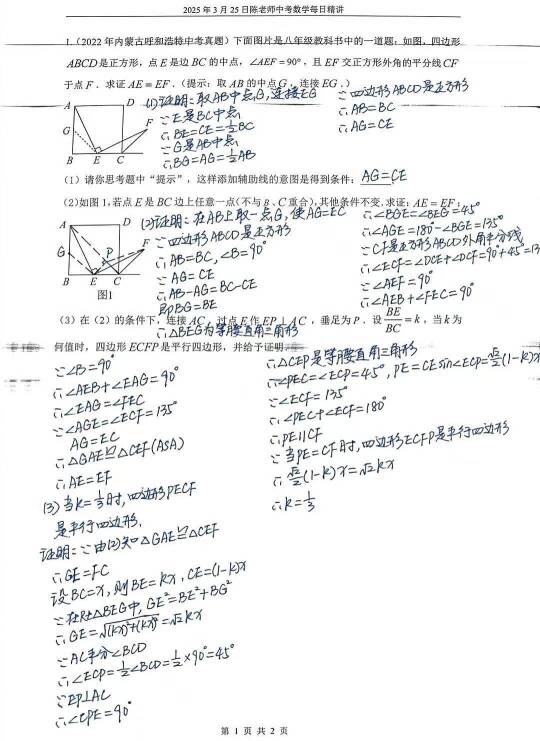 2025 年 3 月 25 日陈老师中考数学每日精讲
1.(2022 年内蒙古呼和浩特中考真题)下面图片是八年级教科书中的一道题:如图,四边形
ABCD 是正方形,点 E 是边 BC 的中点,∠AEF = 90°,且 EF 交正方形外角的平分线 CF
于点 F . 求证 AE = EF .(提示:取 AB 的中点 G ,连接 EG .)
A
D
F
G
B
E
C
(1)证明:取AB中点G,连接EG
∵E是BC中点
∴BE=CE=½BC
∵G是AB中点
∴BG=AG=½AB
∵四边形ABCD是正方形
∴AB=BC
∴AG=CE
(1)请你思考题中“提示”,这样添加辅助线的意图是得到条件: AG=CE
(2)如图 1,若点 E 是 BC 边上任意一点(不与 B 、C 重合),其他条件不变.求证:AE = EF ;
A
D
G
P
F
B
E
C
图1
(2)证明:在AB上取一点G,使AG=EC
∵四边形ABCD是正方形
∴AB=BC,∠B=90°
∵AG=CE
∴AB-AG=BC-CE
即BG=BE
∴△BEG为等腰直角三角形
∴∠BGE=∠BEG=45°
∴∠AGE=180°-∠BGE=135°
∵CF是正方形ABCD外角平分线
∴∠ECF=∠DCE+∠DCF=90°+45°=13
∵∠AEF=90°
∴∠AEB+∠FEC=90°
(3)在(2)的条件下,连接 AC ,过点 E 作 EP ⊥ AC ,垂足为 P . 设 BE/BC = k ,当 k 为
何值时,四边形 ECFP 是平行四边形,并给予证明.
∵∠B=90°
∴∠AEB+∠EAG=90°
∴∠EAG=∠FEC
∵∠AGE=∠ECF=135°
AG=EC
∴△GAE≌△CEF(ASA)
∴AE=EF
(3)当k=⅓时,四边形PECF
是平行四边形.
证明:∵由(2)知△GAE≌△CEF
∴GE=FC
设BC=x,则BE=kx,CE=(1-k)x
∵在Rt△BEG中,GE²=BE²+BG²
∴GE=√((kx)²+(kx)²)=√2kx
∵AC平分∠BCD
∴∠ECP=½∠BCD=½×90°=45°
∵EP⊥AC
∴∠CPE=90°
∴△CEP是等腰直角三角形
∴∠PEC=∠ECP=45°,PE=CEsin∠ECP=√2/2(1-k)x
∵∠ECF=135°
∴∠PEC+∠ECF=180°
∴PE∥CF
∵当PE=CF时,四边形ECFP是平行四边形
∴√2/2(1-k)x=√2kx
∴k=⅓
第 1 页 共 2 页